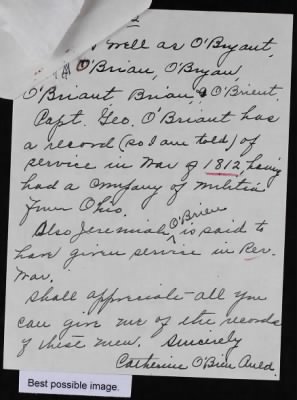 well as O'Bryant,
O'Brian, O'Bryan,
O'Briant Brian, & O'Brient.
Capt. Geo. O'Briant has
a record (so I am told) of
service in War of 1812, having
had a company of militia
from Ohio.
Also Jeremiah O'Brien is said to
have given service in Rev.
War.
Shall appreciate all you
can give me of the records
of these men. Sincerely
Catherine O'Brien Auld.
Best possible image.